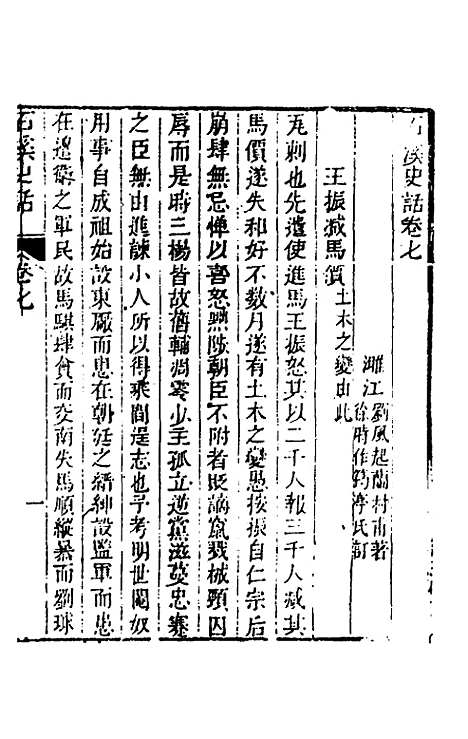 石溪史話卷七
濉江劉鳳起蘭村甫著
徐時作筠亭氏訂
王振減馬價土木之變由此
瓦剌也先遣使進馬王振怒其以二千人報三千人減其
馬價遂失和好不数月遂有土木之變愚按振自仁宗后
崩肆無忌憚以喜怒黙陟朝臣不附者貶謫竄戮械頸囚
辱而是時三楊皆故舊輔凋零少主孤立逆黨滋蔓忠蹇
之臣無由進諫小人所以得乘間逞志也予考明世閹奴
用事自成祖始設東廠而患在朝廷之縉紳設監軍而患
在邊徼之軍民故馬騏肆貪而交南失馬順縱暴而劉球
石溪史話
卷七
一